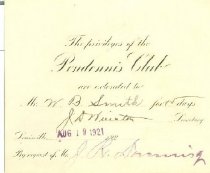 The privileges of the
Pendennis Club
are extended to
Mr. W B Smith for Days
Secretary
Louisville AUG 19 1921
By request of Mr. J R